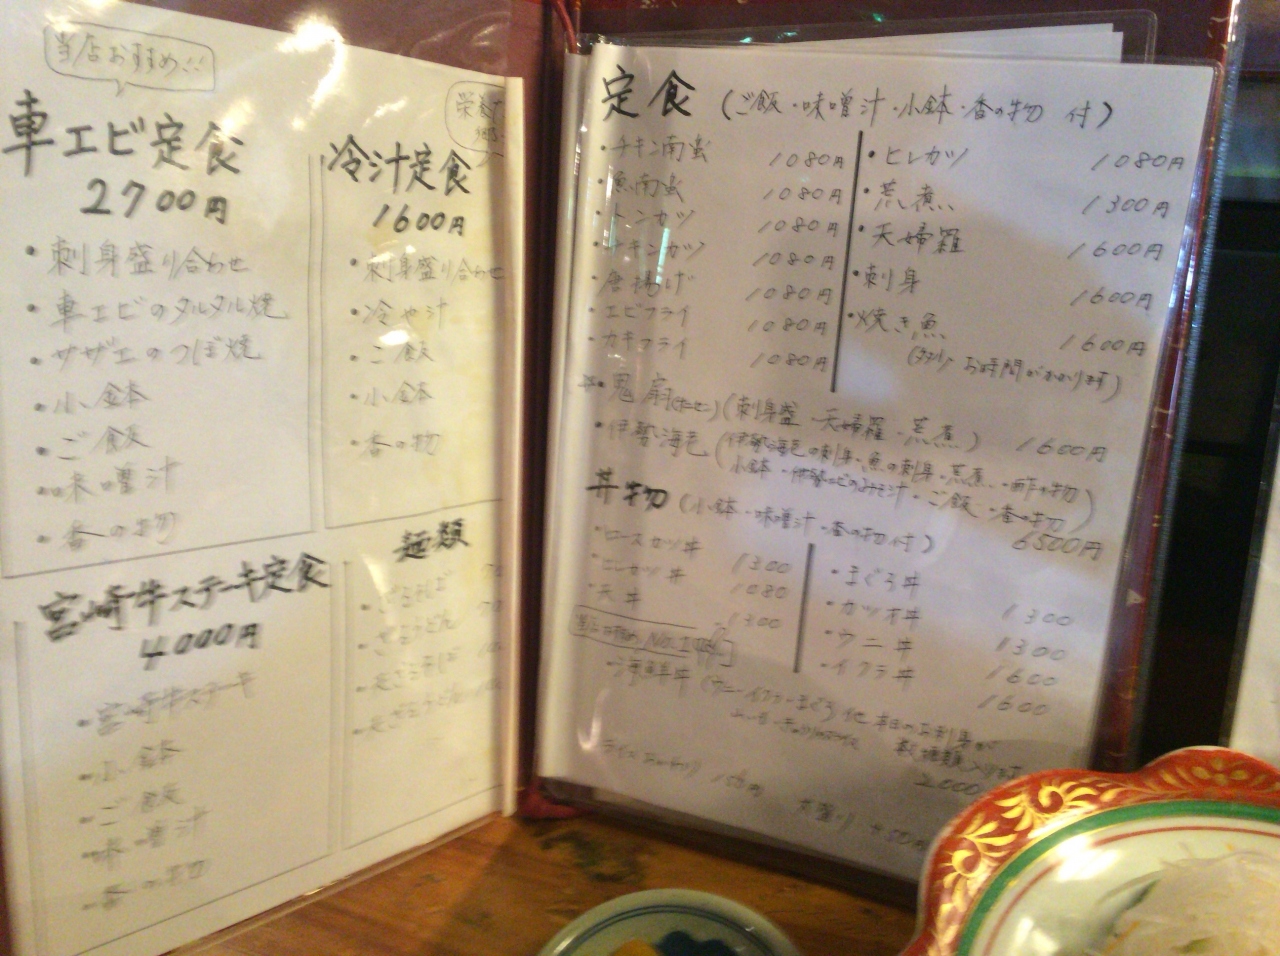 当店おすすめ!!
車エビ定食
2700円
・刺身盛り合わせ
・車エビのタルタル焼
・サザエのつぼ焼
・小鉢
・ご飯
・味噌汁
・香の物
冷汁定食
1600円
・刺身盛り合わせ
・冷や汁
・ご飯
・小鉢
・香の物
宮崎牛ステーキ定食
4000円
・宮崎牛ステーキ
・小鉢
・ご飯
・味噌汁
・香の物
麺類
・ざるそば
・ざるうどん
・天ざるそば
・天ざるうどん
定食(ご飯・味噌汁・小鉢・香の物 付)
・チキン南蛮 1080円
・魚南蛮 1080円
・トンカツ 1080円
・チキンカツ 1080円
・唐揚げ 1080円
・エビフライ 1080円
・カキフライ 1080円
・ヒレカツ 1080円
・荒煮 1300円
・天婦羅 1600円
・刺身 1600円
・焼き魚 1600円
(多少お時間がかかります)
・鬼扇(刺身盛・天婦羅・荒煮) 1600円
・伊勢海老(伊勢海老の刺身・魚の刺身・荒煮・酢の物
小鉢・伊勢エビのみそ汁・ご飯・香の物) 6500円
丼物(小鉢・味噌汁・香の物付)
・ロースカツ丼 1300
・ヒレカツ丼 1080
・天丼 1300
・まぐろ丼 1300
・カツオ丼 1300
・ウニ丼 1600
・イクラ丼 1600
No.1
・海鮮丼(ウニ・イクラ・まぐろ他 本日のお刺身が
数種類入ります
2000
大盛り +50円